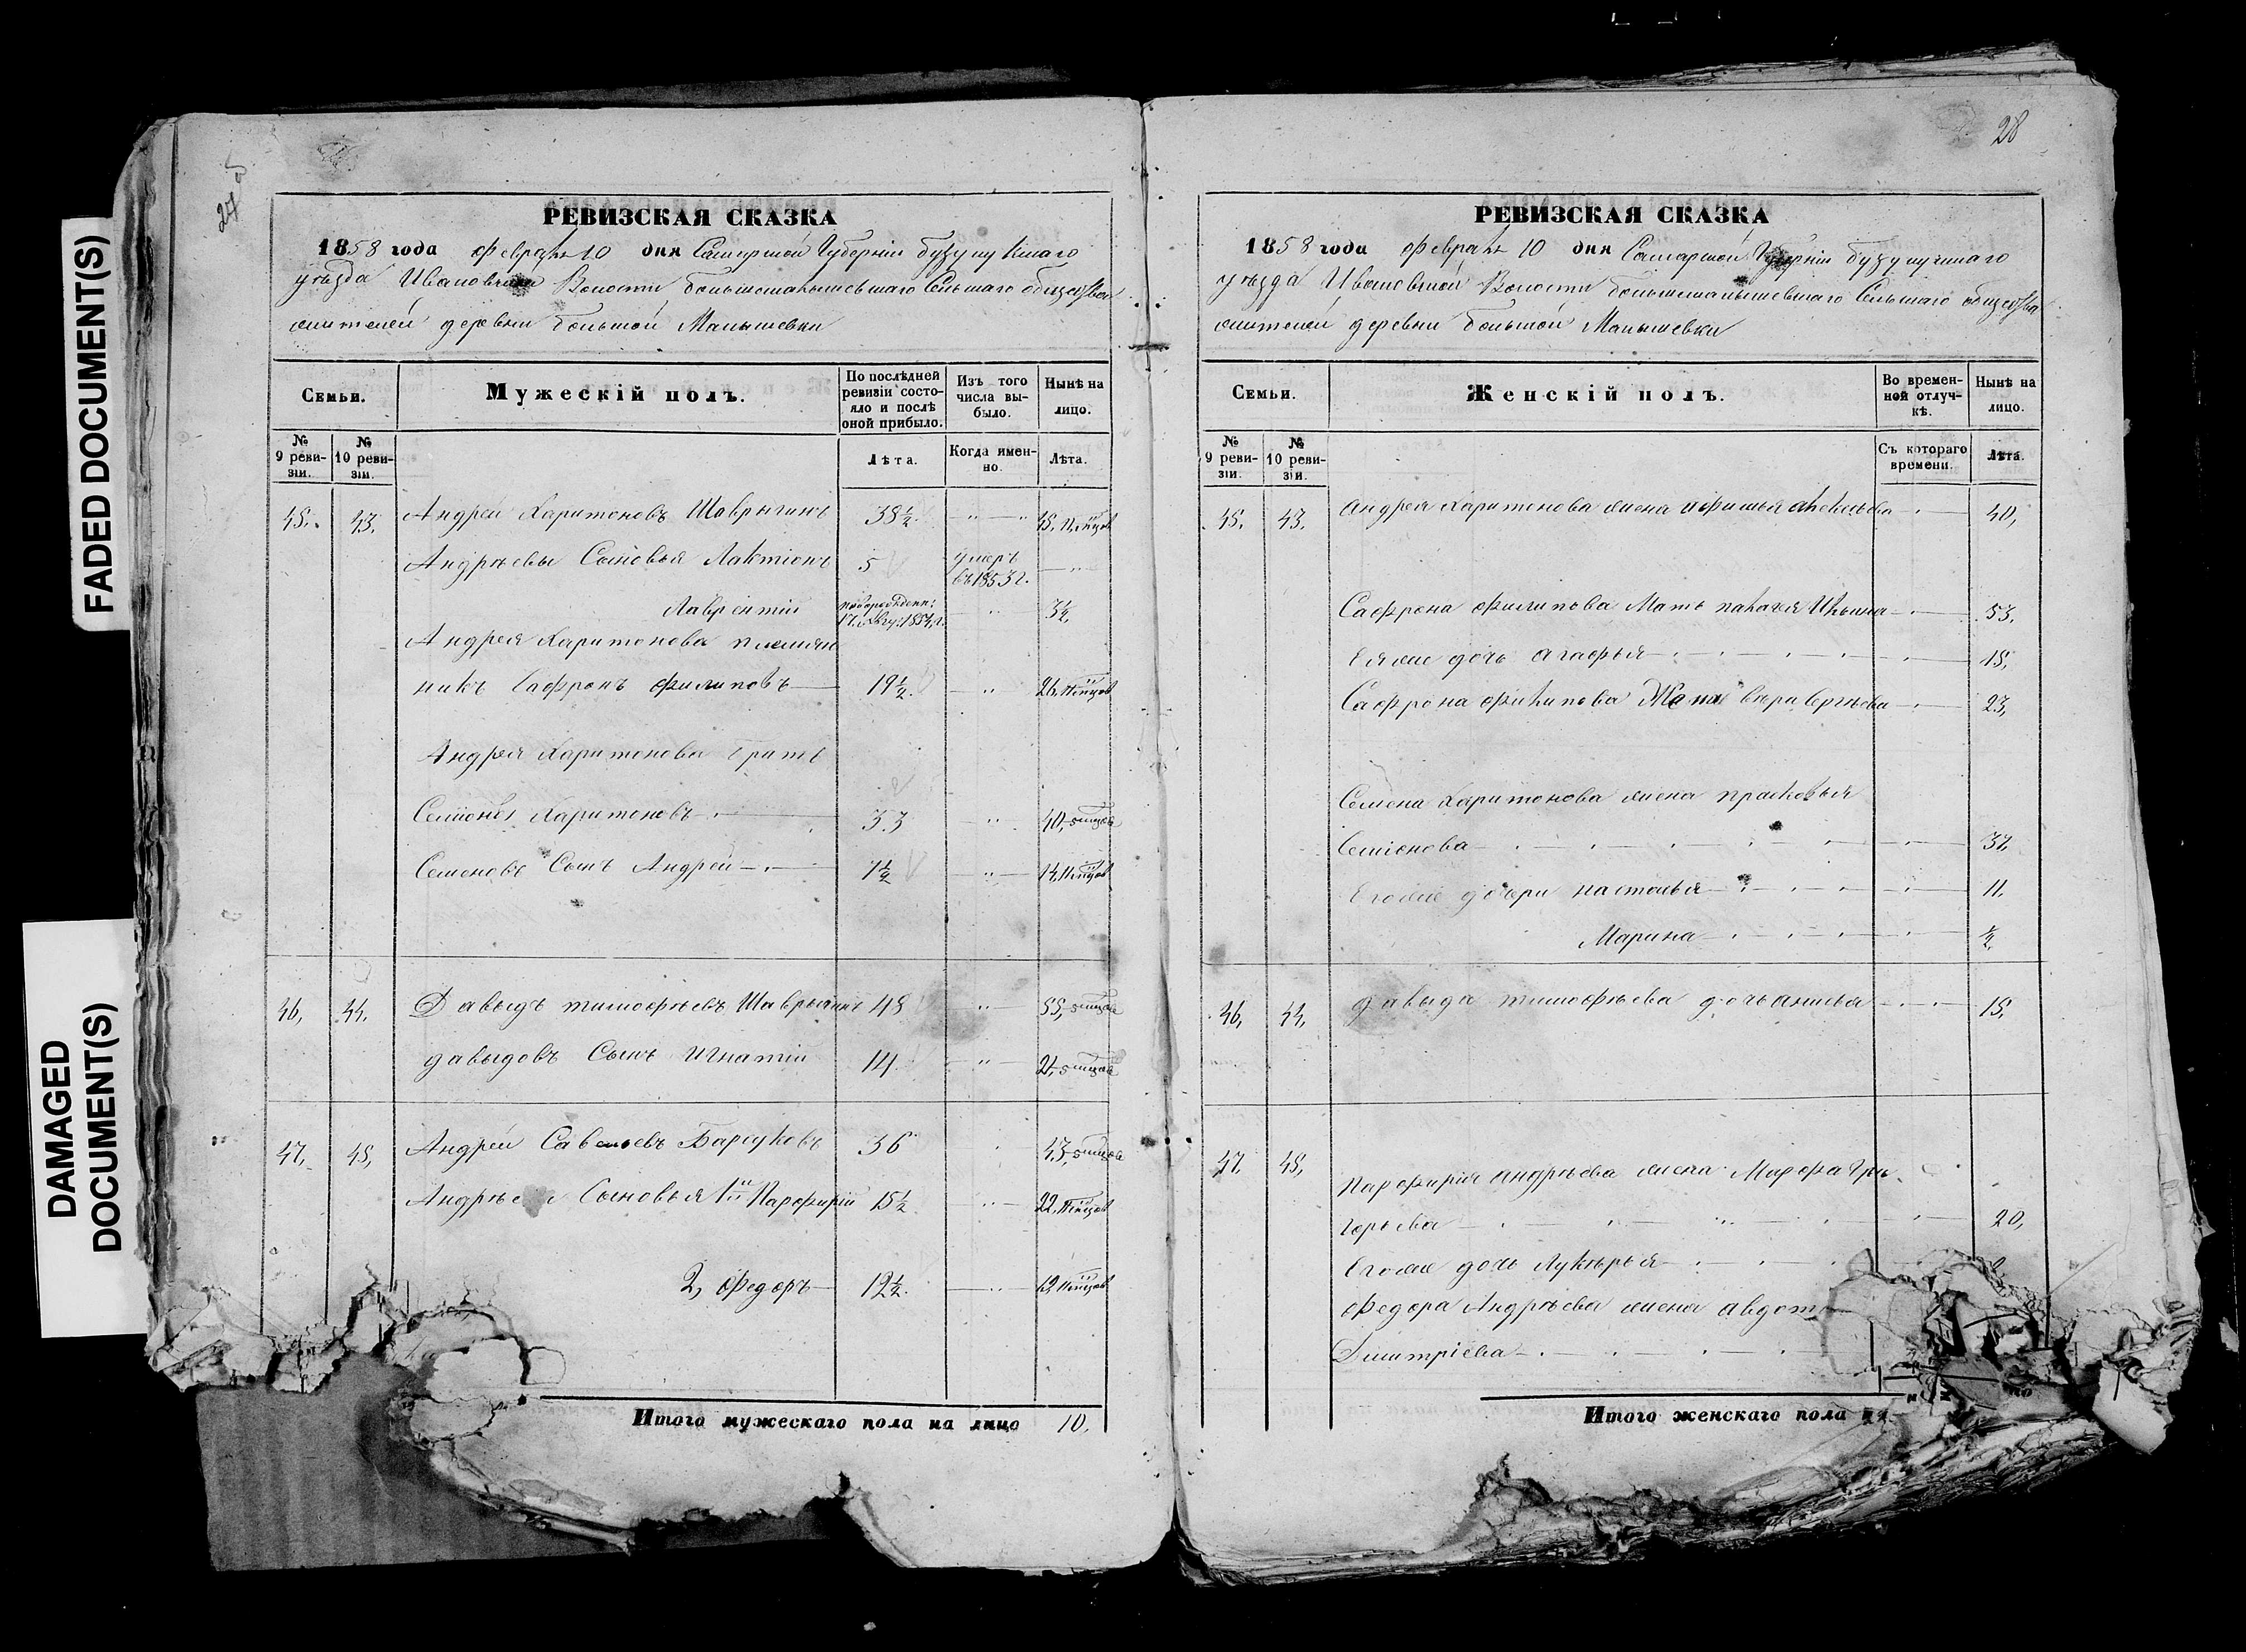 FADED DOCUMENT(S)
DAMAGED
DOCUMENT(S)
27
РЕВИЗСКАЯ СКАЗКА
1858 года Февраля 10 дня Самарской Губерніи бузулукскаго
уѣзда Ивановской Волости большемалышевскаго Сельскаго общества
жителей деревни большой Малышевки
Семьи.
Мужескій полъ.
По послѣдней
ревизіи состо-
яло и послѣ
оной прибыло.
Изъ того
числа вы-
было.
Нынѣ на
лицо.
№
9 реви-
зіи.
№
10 реви-
зіи.
Лѣта.
Когда имен-
но.
Лѣта.
45. 43. Андрей Харитоновъ Шаврыгинъ 38½ 45,
Андрѣевы Сыновья Лактіонъ 5 умеръ
въ 1853 г.
Лаврентій 3½
17. Авгу: 1854. г.
Андрея Харитонова племян
никъ Сафронъ Филиповъ 19½ 26,
Андрея Харитонова братъ
Семіонъ Харитоновъ 33 40,
Семеновъ Сынъ Андрей 7½ 14,
46, 44. Давыдъ тимофѣевъ Шаврыгинъ 48 55,
давыдовъ Сынъ Игнатій 14 21,
47, 45, Андрей Савельевъ Барсуковъ 36 43,
Андрѣевы Сыновья 1й Парфирій 15½ 22,
2, Федоръ 12½ 19,
Итого мужескаго пола на лицо 10.
28
РЕВИЗСКАЯ СКАЗКА
1858 года Февраля 10 дня Самарской Губерніи бузулукскаго
уѣзда Ивановской Волости большемалышевскаго Сельскаго общества
жителей деревни большой Малышевки
Семьи.
Женскій полъ.
Во времен-
ной отлуч-
кѣ.
Нынѣ на
лицо.
№
9 реви-
зіи.
№
10 реви-
зіи.
Съ котораго
времени.
Лѣта.
45. 43. Андрея Харитонова жена Афимья Алексѣева 40,
Сафрона Филипова Мать палагея Ильина 53.
Еяже дочь Агафья 15,
Сафрона Филипова Жена вѣра Сергѣева 23,
Семена Харитонова жена прасковья
Семіонова 37,
Егоже дочери настасья 11.
Марина ½
46, 44, давыда тимофѣева дочь анисья 15,
47. 45, Парфирія андрѣева жена Марфа Гри-
горьева 20,
Егоже дочь Лукѣрья
Федора Андрѣева жена авдотья
Дмитріева
Итого женскаго пола на